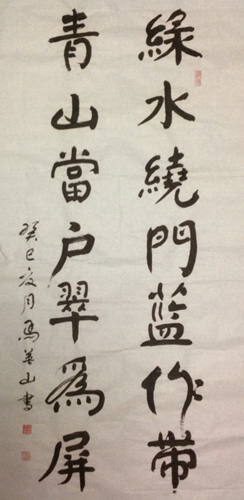 綠水繞門藍作帶
青山當户翠爲屏
癸巳夏月馬山書